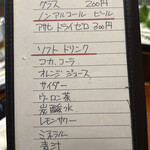 グラス 200円
ノンアルコール ビール
アサヒ ドライゼロ 300円
ソフト ドリンク
コカ、コーラ
オレンジ ジュース
サイダー
ウーロン茶
炭酸水
レモンサワー
ミネラル
青汁